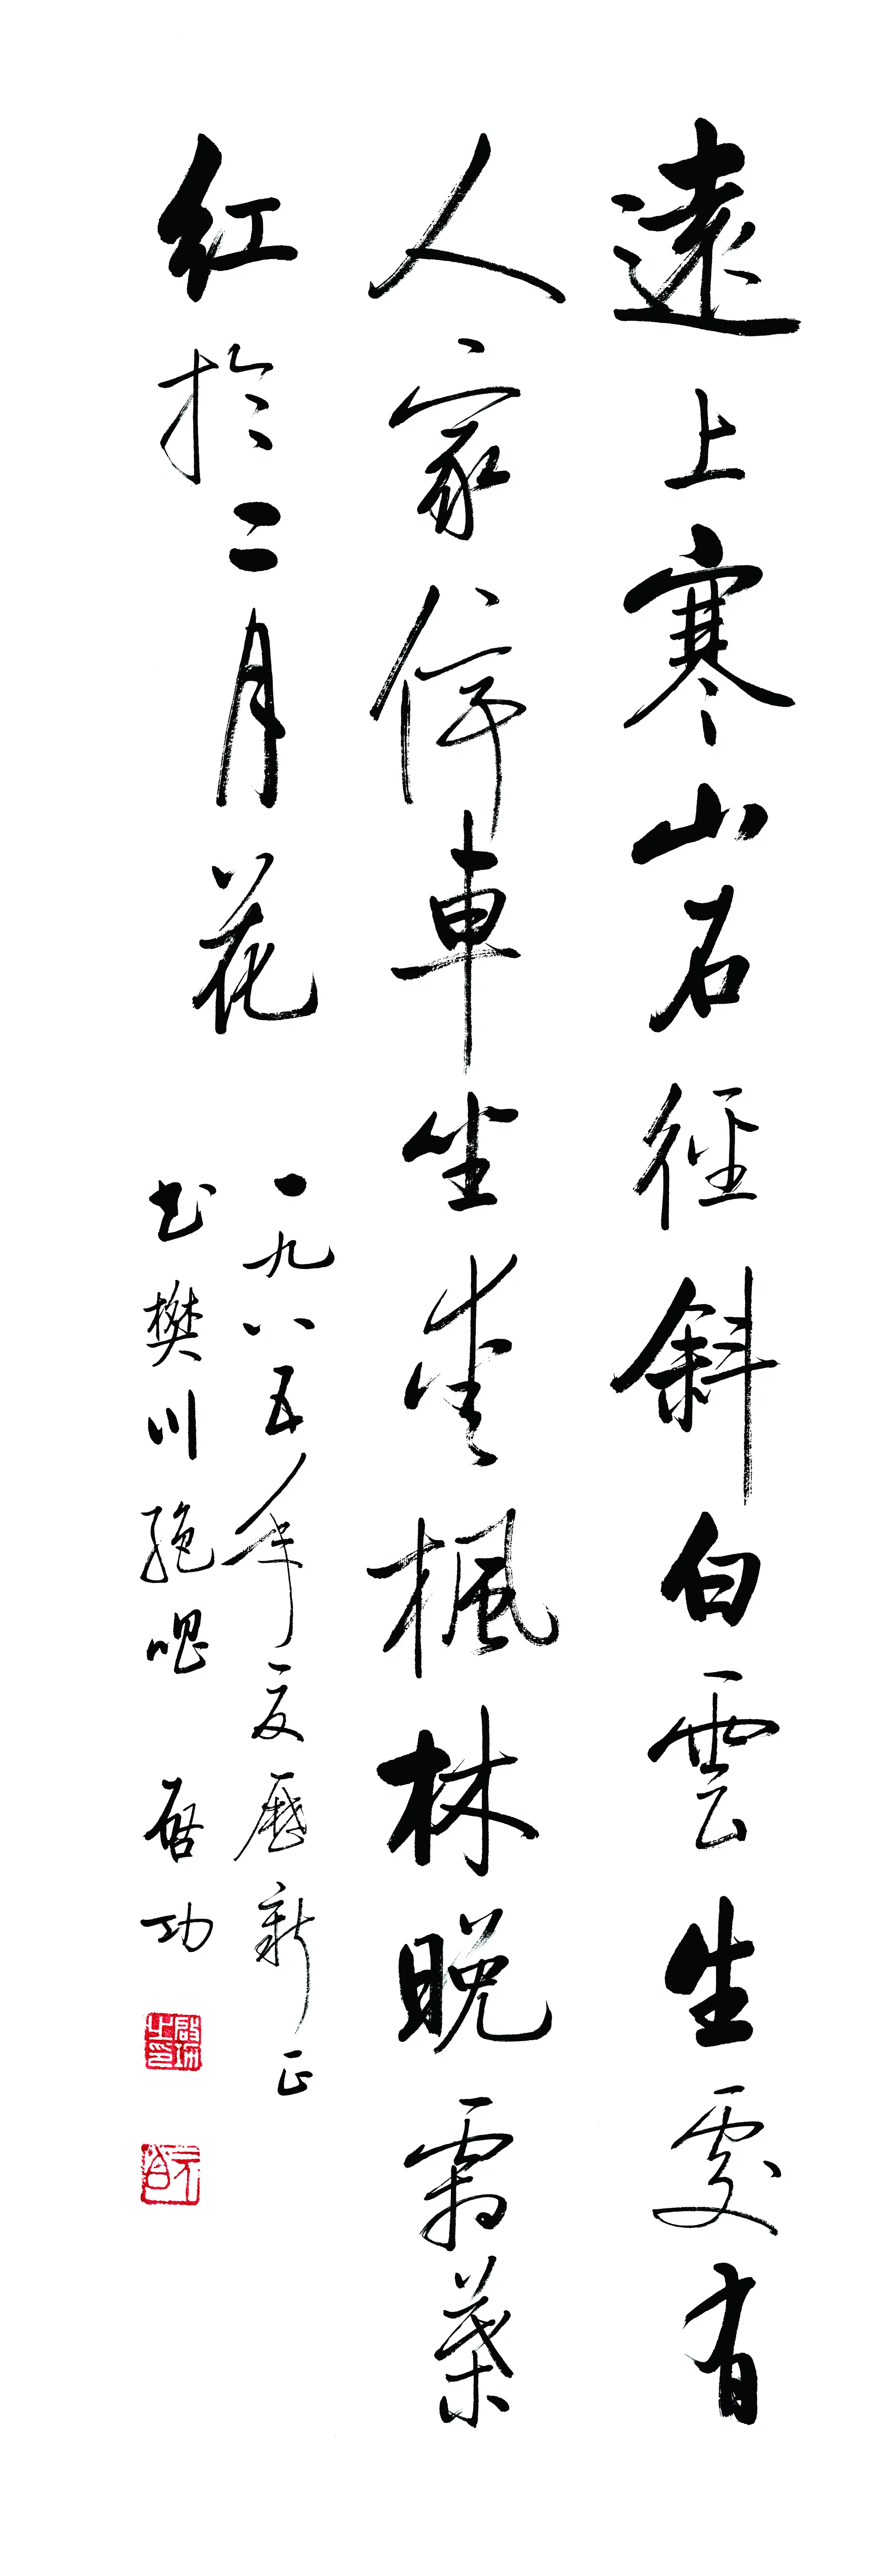 遠上寒山石徑斜白雲生處有
人家停車坐愛楓林晚霜葉
紅於二月花
一九八五年夏曆新正
書樊川絕唱 启功
啟功之印
元白